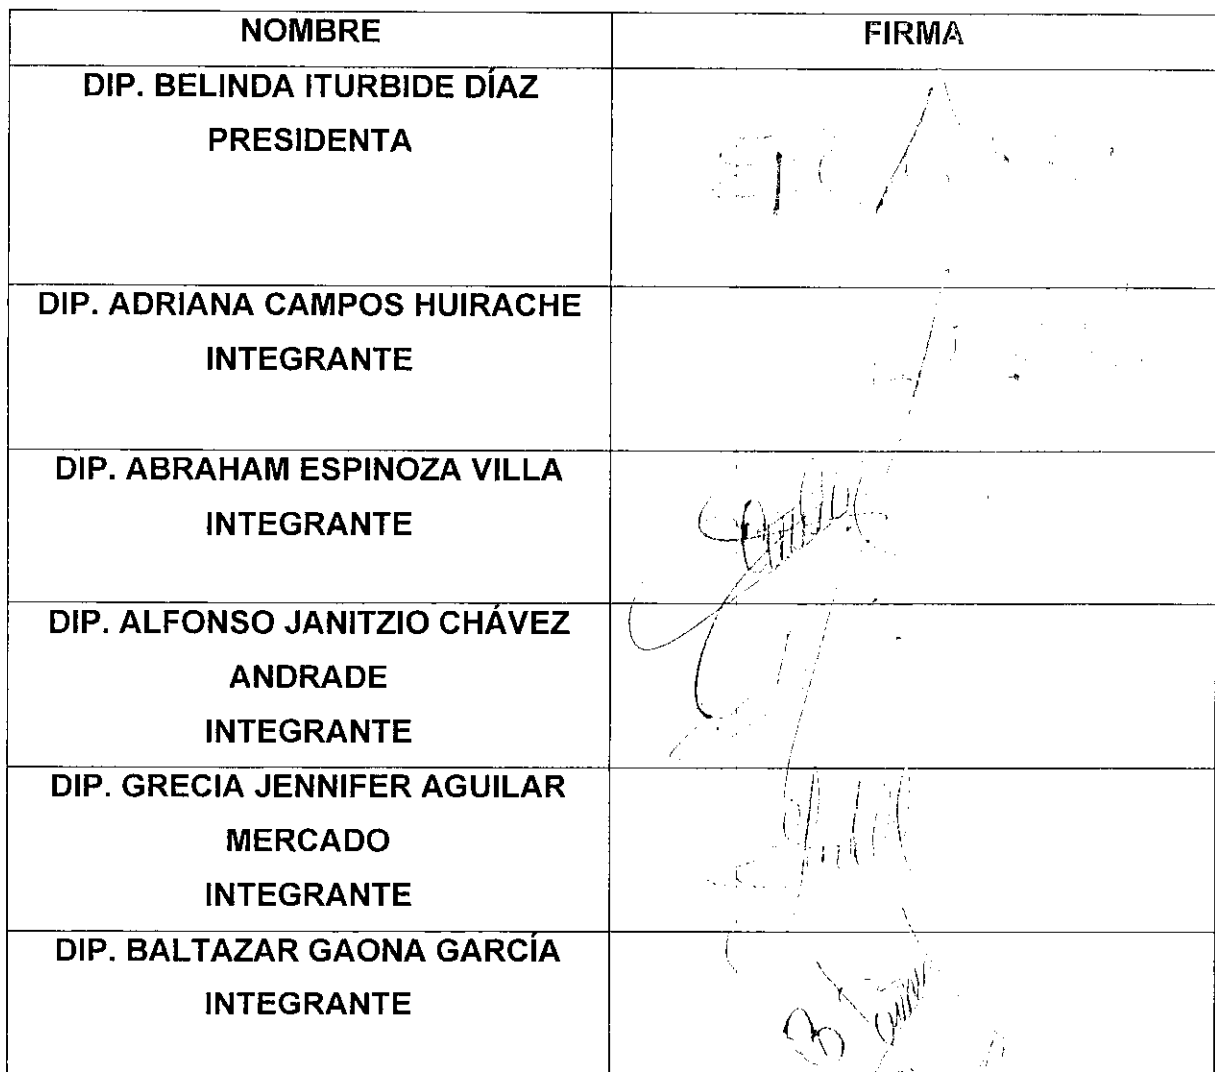 NOMBRE FIRMA
DIP. BELINDA ITURBIDE DÍAZ
PRESIDENTA
DIP. ADRIANA CAMPOS HUIRACHE
INTEGRANTE
DIP. ABRAHAM ESPINOZA VILLA
INTEGRANTE
DIP. ALFONSO JANITZIO CHÁVEZ
ANDRADE
INTEGRANTE
DIP. GRECIA JENNIFER AGUILAR
MERCADO
INTEGRANTE
DIP. BALTAZAR GAONA GARCÍA
INTEGRANTE